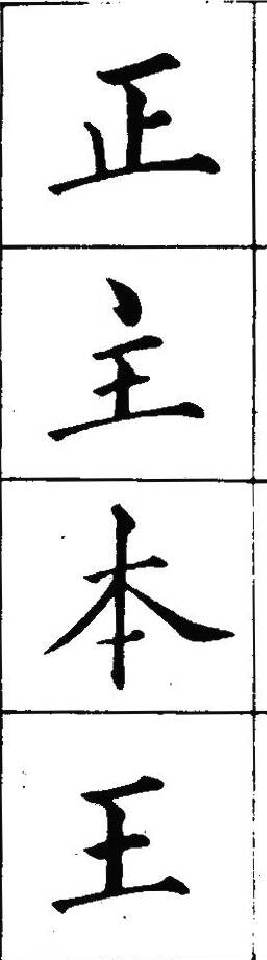 正
主
本
王